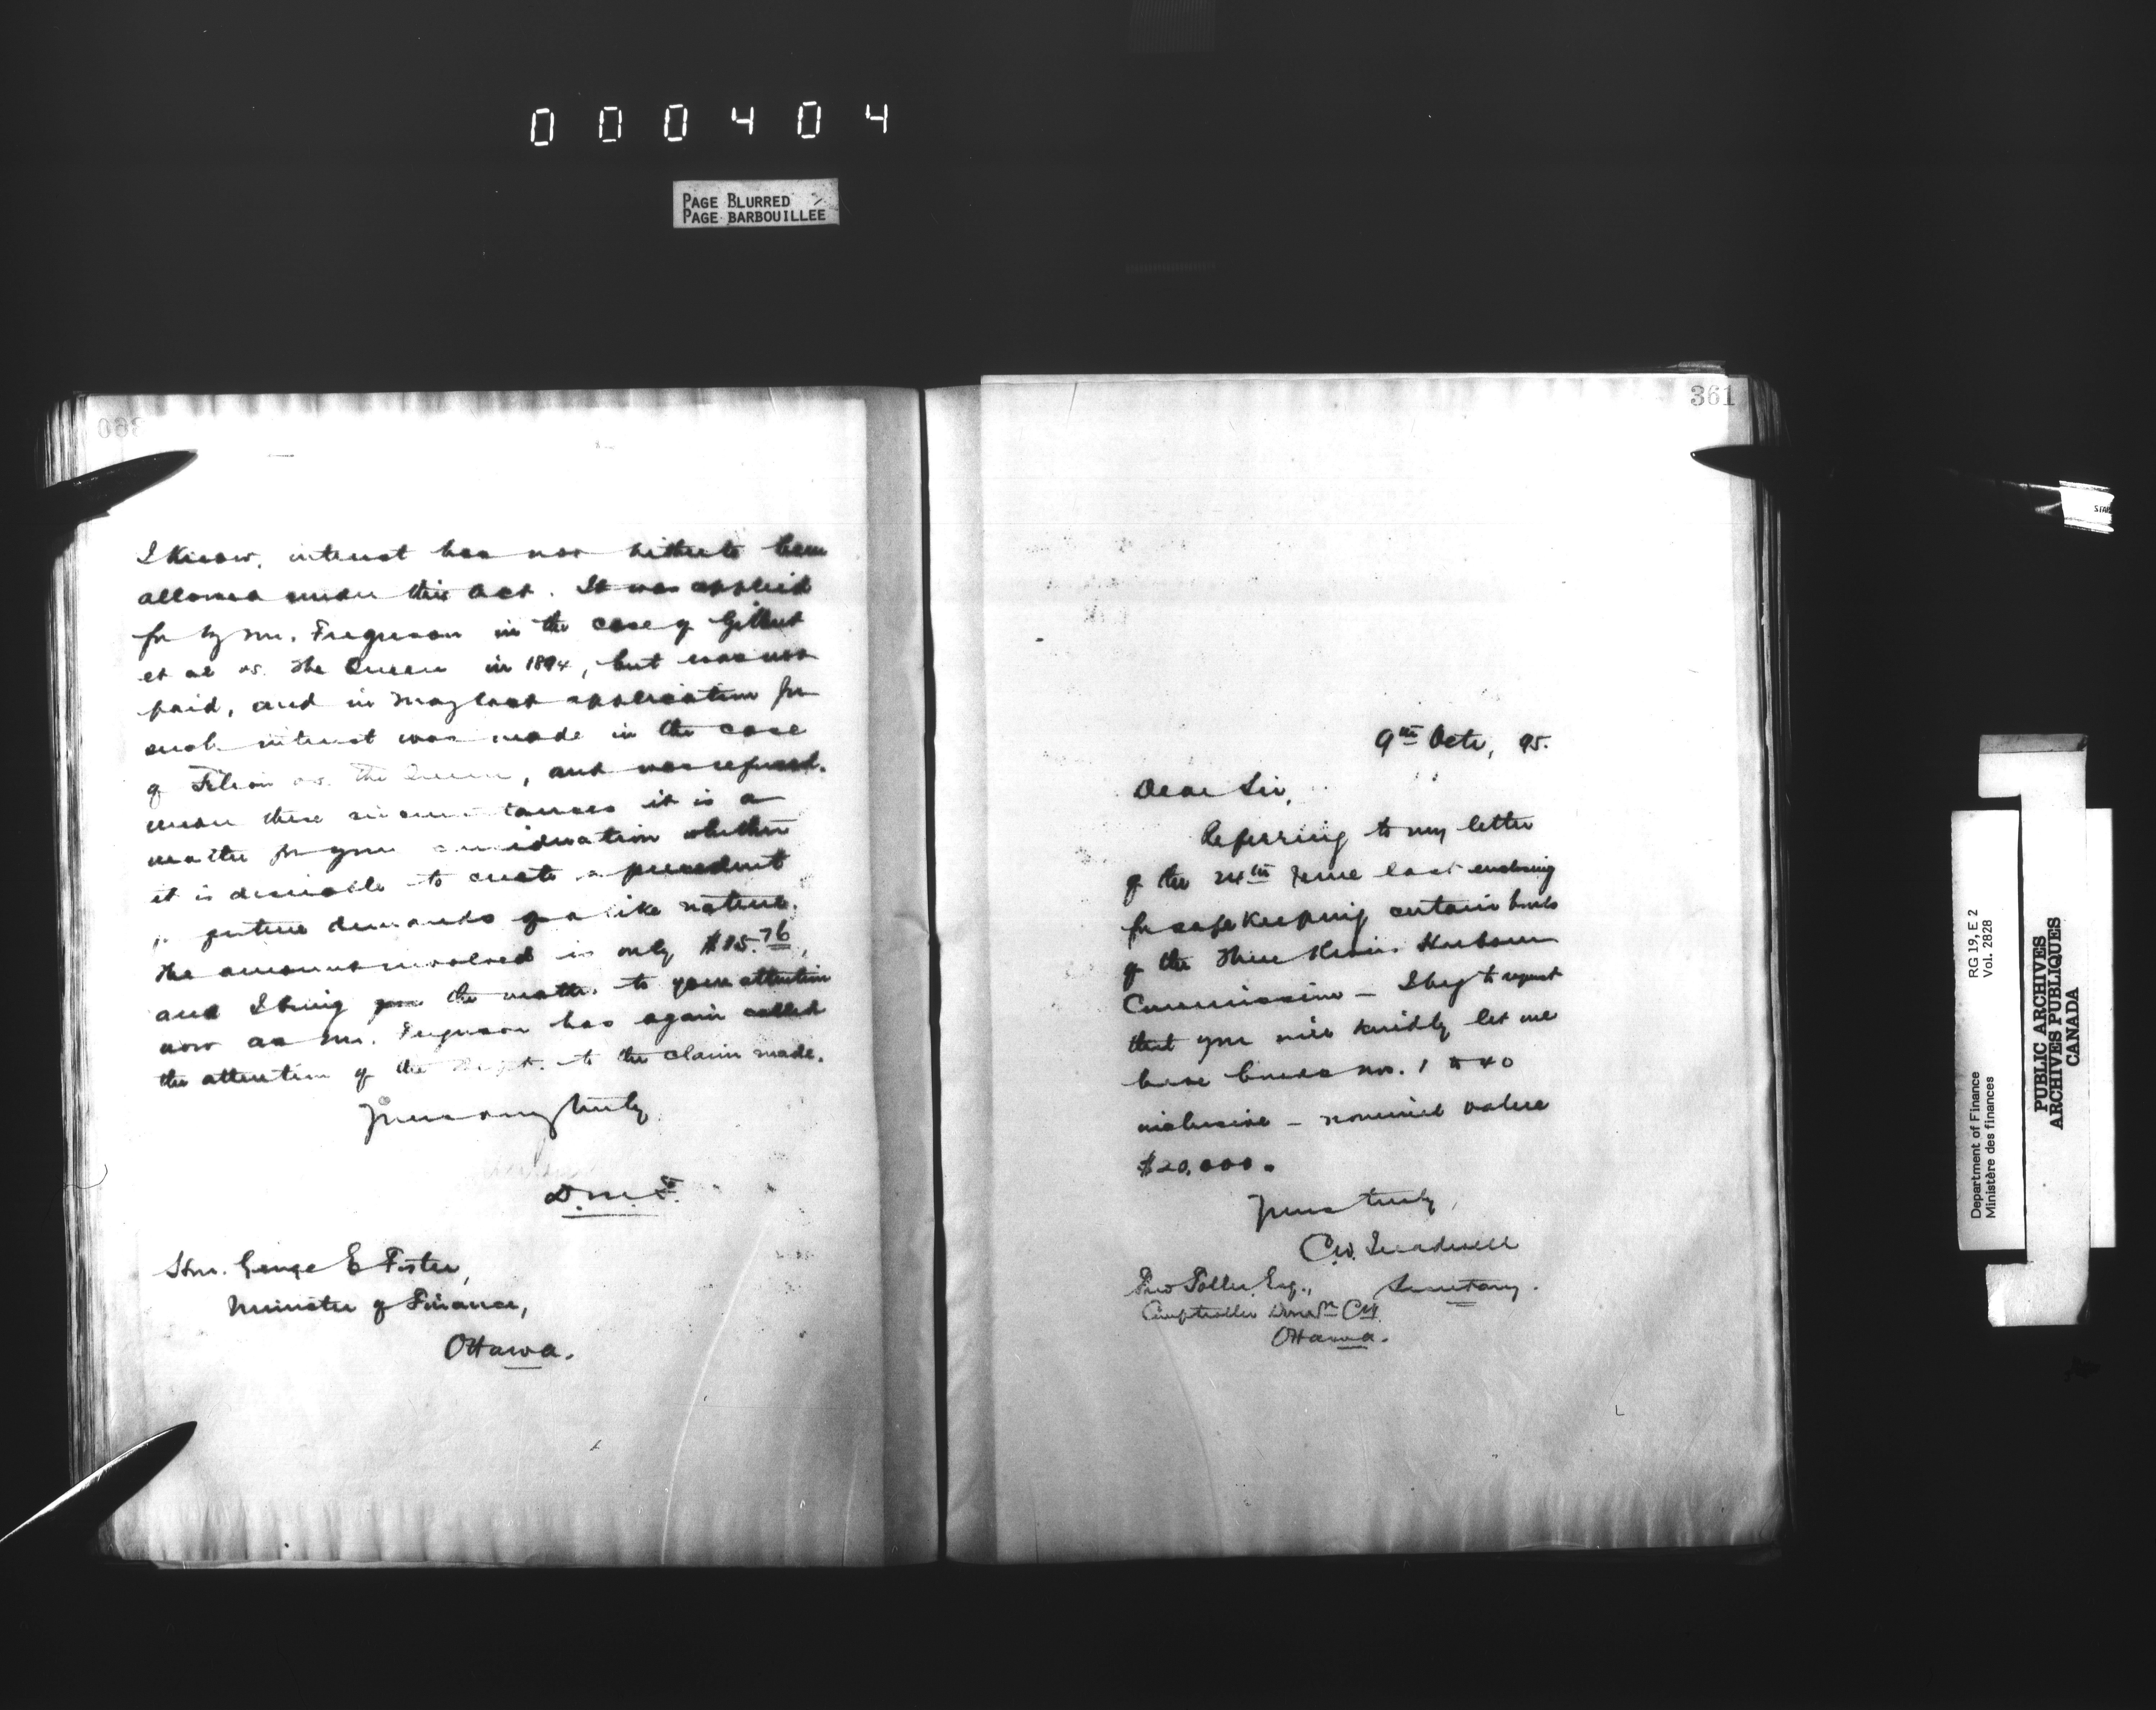 000404
PAGE BLURRED
PAGE BARBOUILLÉE
360
I Know, interest has not hitherto been
allowed under this Act. It was applied
for by Mr. Ferguson in the case of Gilbert
et al vs. The Queen in 1894, but was not
paid, and in May last application for
such interest was made in the case
of Filion vs. the Queen, and was refused.
Under these circumstances it is a
matter for your consideration whether
it is desirable to create a precedent
future demands of a like nature.
The amount involved is only $15.76,
and I bring the matter to your attention
now as Mr. Ferguson has again called
the attention of the Dept. to the claim made.
Yours very truly
D.M.F.
Hon. George E Foster,
Minister of Finance,
Ottawa.
361
9th Octr, 95.
Dear Sir,
Referring to my letter
of the 24th June last enclosing
for safe Keeping certain bonds
of the Three Rivers Harbour
Commission – I beg to request
that you will kindly let me
have bonds nos. 1 to 40
inclusive – nominal value
$20,000.
Yours truly,
C.W. Treadwell
Secretary.
Toller Esq.,
Comptroller Domn Cy
Ottawa.
RG 19, E 2
Vol. 2828
Department of Finance
Ministère des finances
PUBLIC ARCHIVES
ARCHIVES PUBLIQUES
CANADA